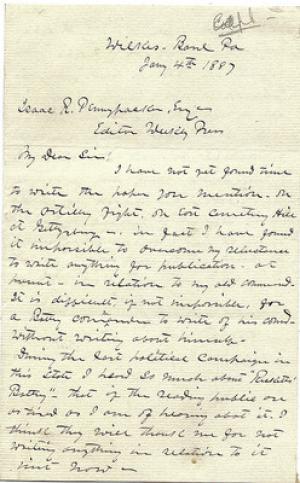 Wilkes-Barre Pa
Jany 4th 1887
Isaac R. Pennypacker, Esq
Editor Weekly Press
My Dear Sir!
I have not yet found time
to write the paper you mention. on
the artillery fight, on East Cemetery Hill
at Gettysburg. in fact I have found
it impossible to overcome my reluctance
to write anything for publication. at
present. in relation to my old command.
It is difficult, if not impossible, for
a Battery commander to write of his comd
without writing about himself.
During the last political campaign in
this State I heard so much about "Ricketts'
Battery" that if the reading public are
as tired as I am of hearing about it, I
think they will thank me for not
writing anything in relation to it
just now.